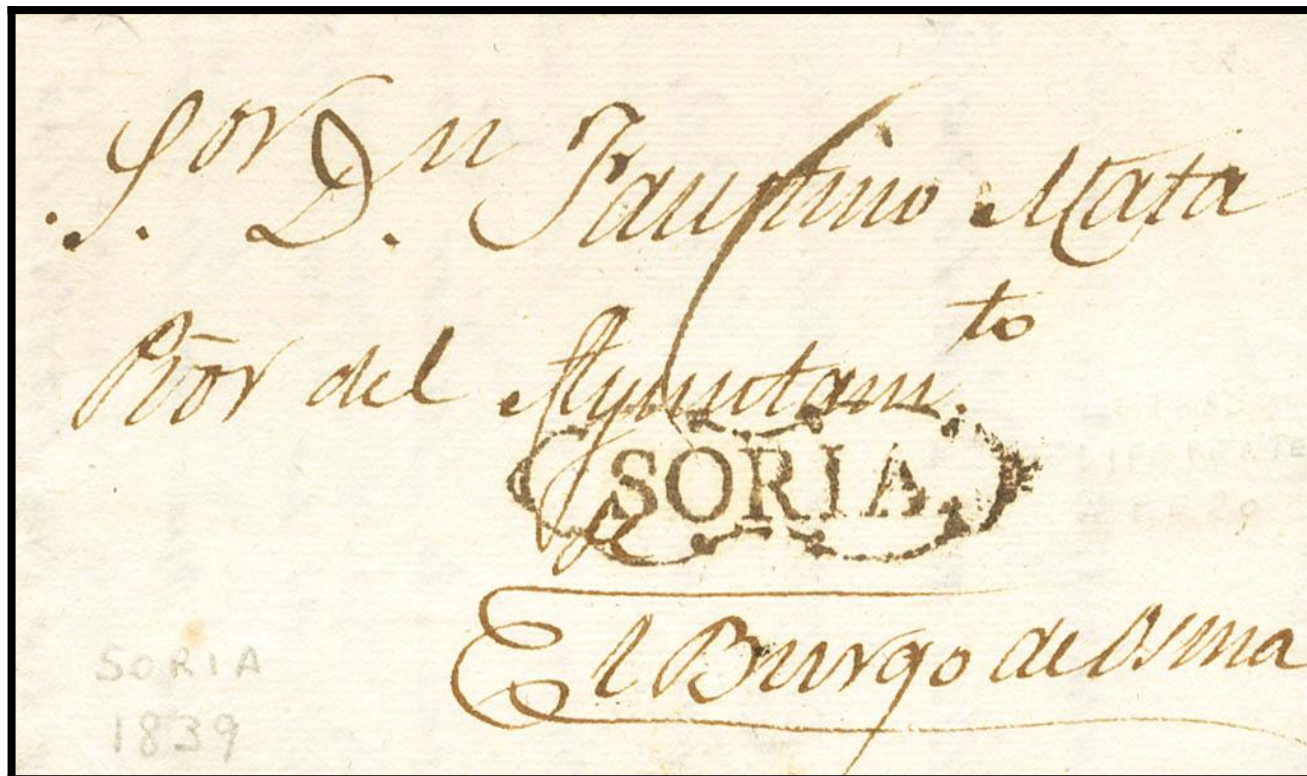 S.or D.n Faustino Mata
Pror del Ayuntam.to
SORIA
El Burgo de Osma
SORIA
1839